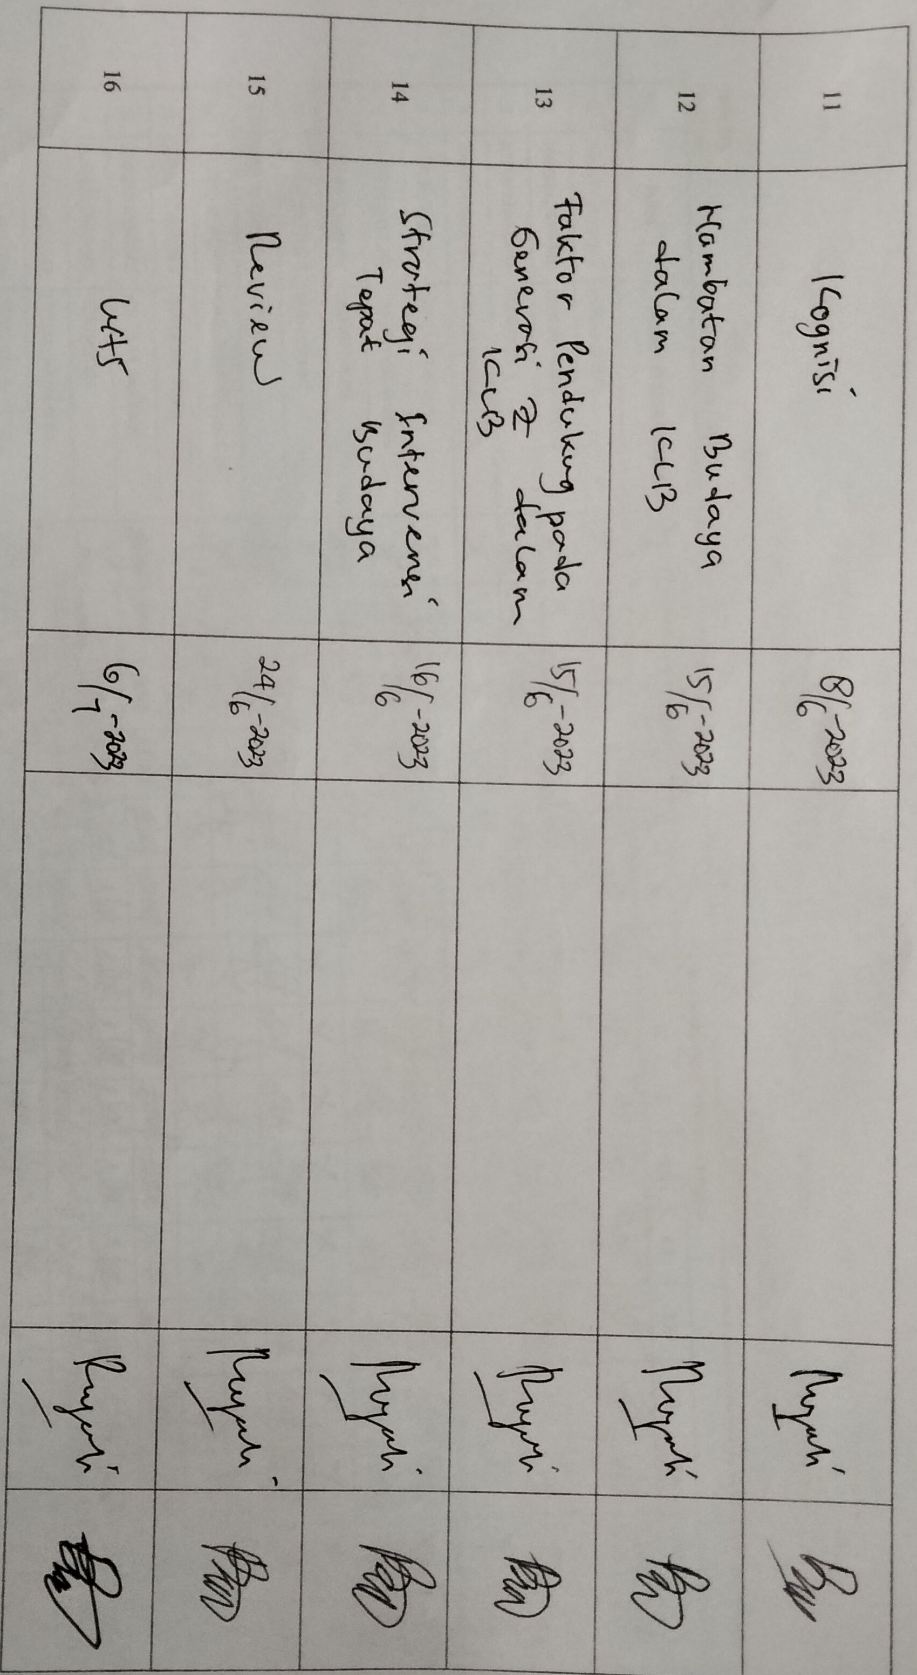 11
Kognisi
8/6-2023
12
Hambatan Budaya
dalam KLB
15/6-2023
13
Faktor Pendukung pada
Generasi Z dalam
KLB
15/6-2023
14
Strategi Intervensi
Tepat Budaya
16/6-2023
15
Review
24/6-2023
16
UAS
6/7-2023